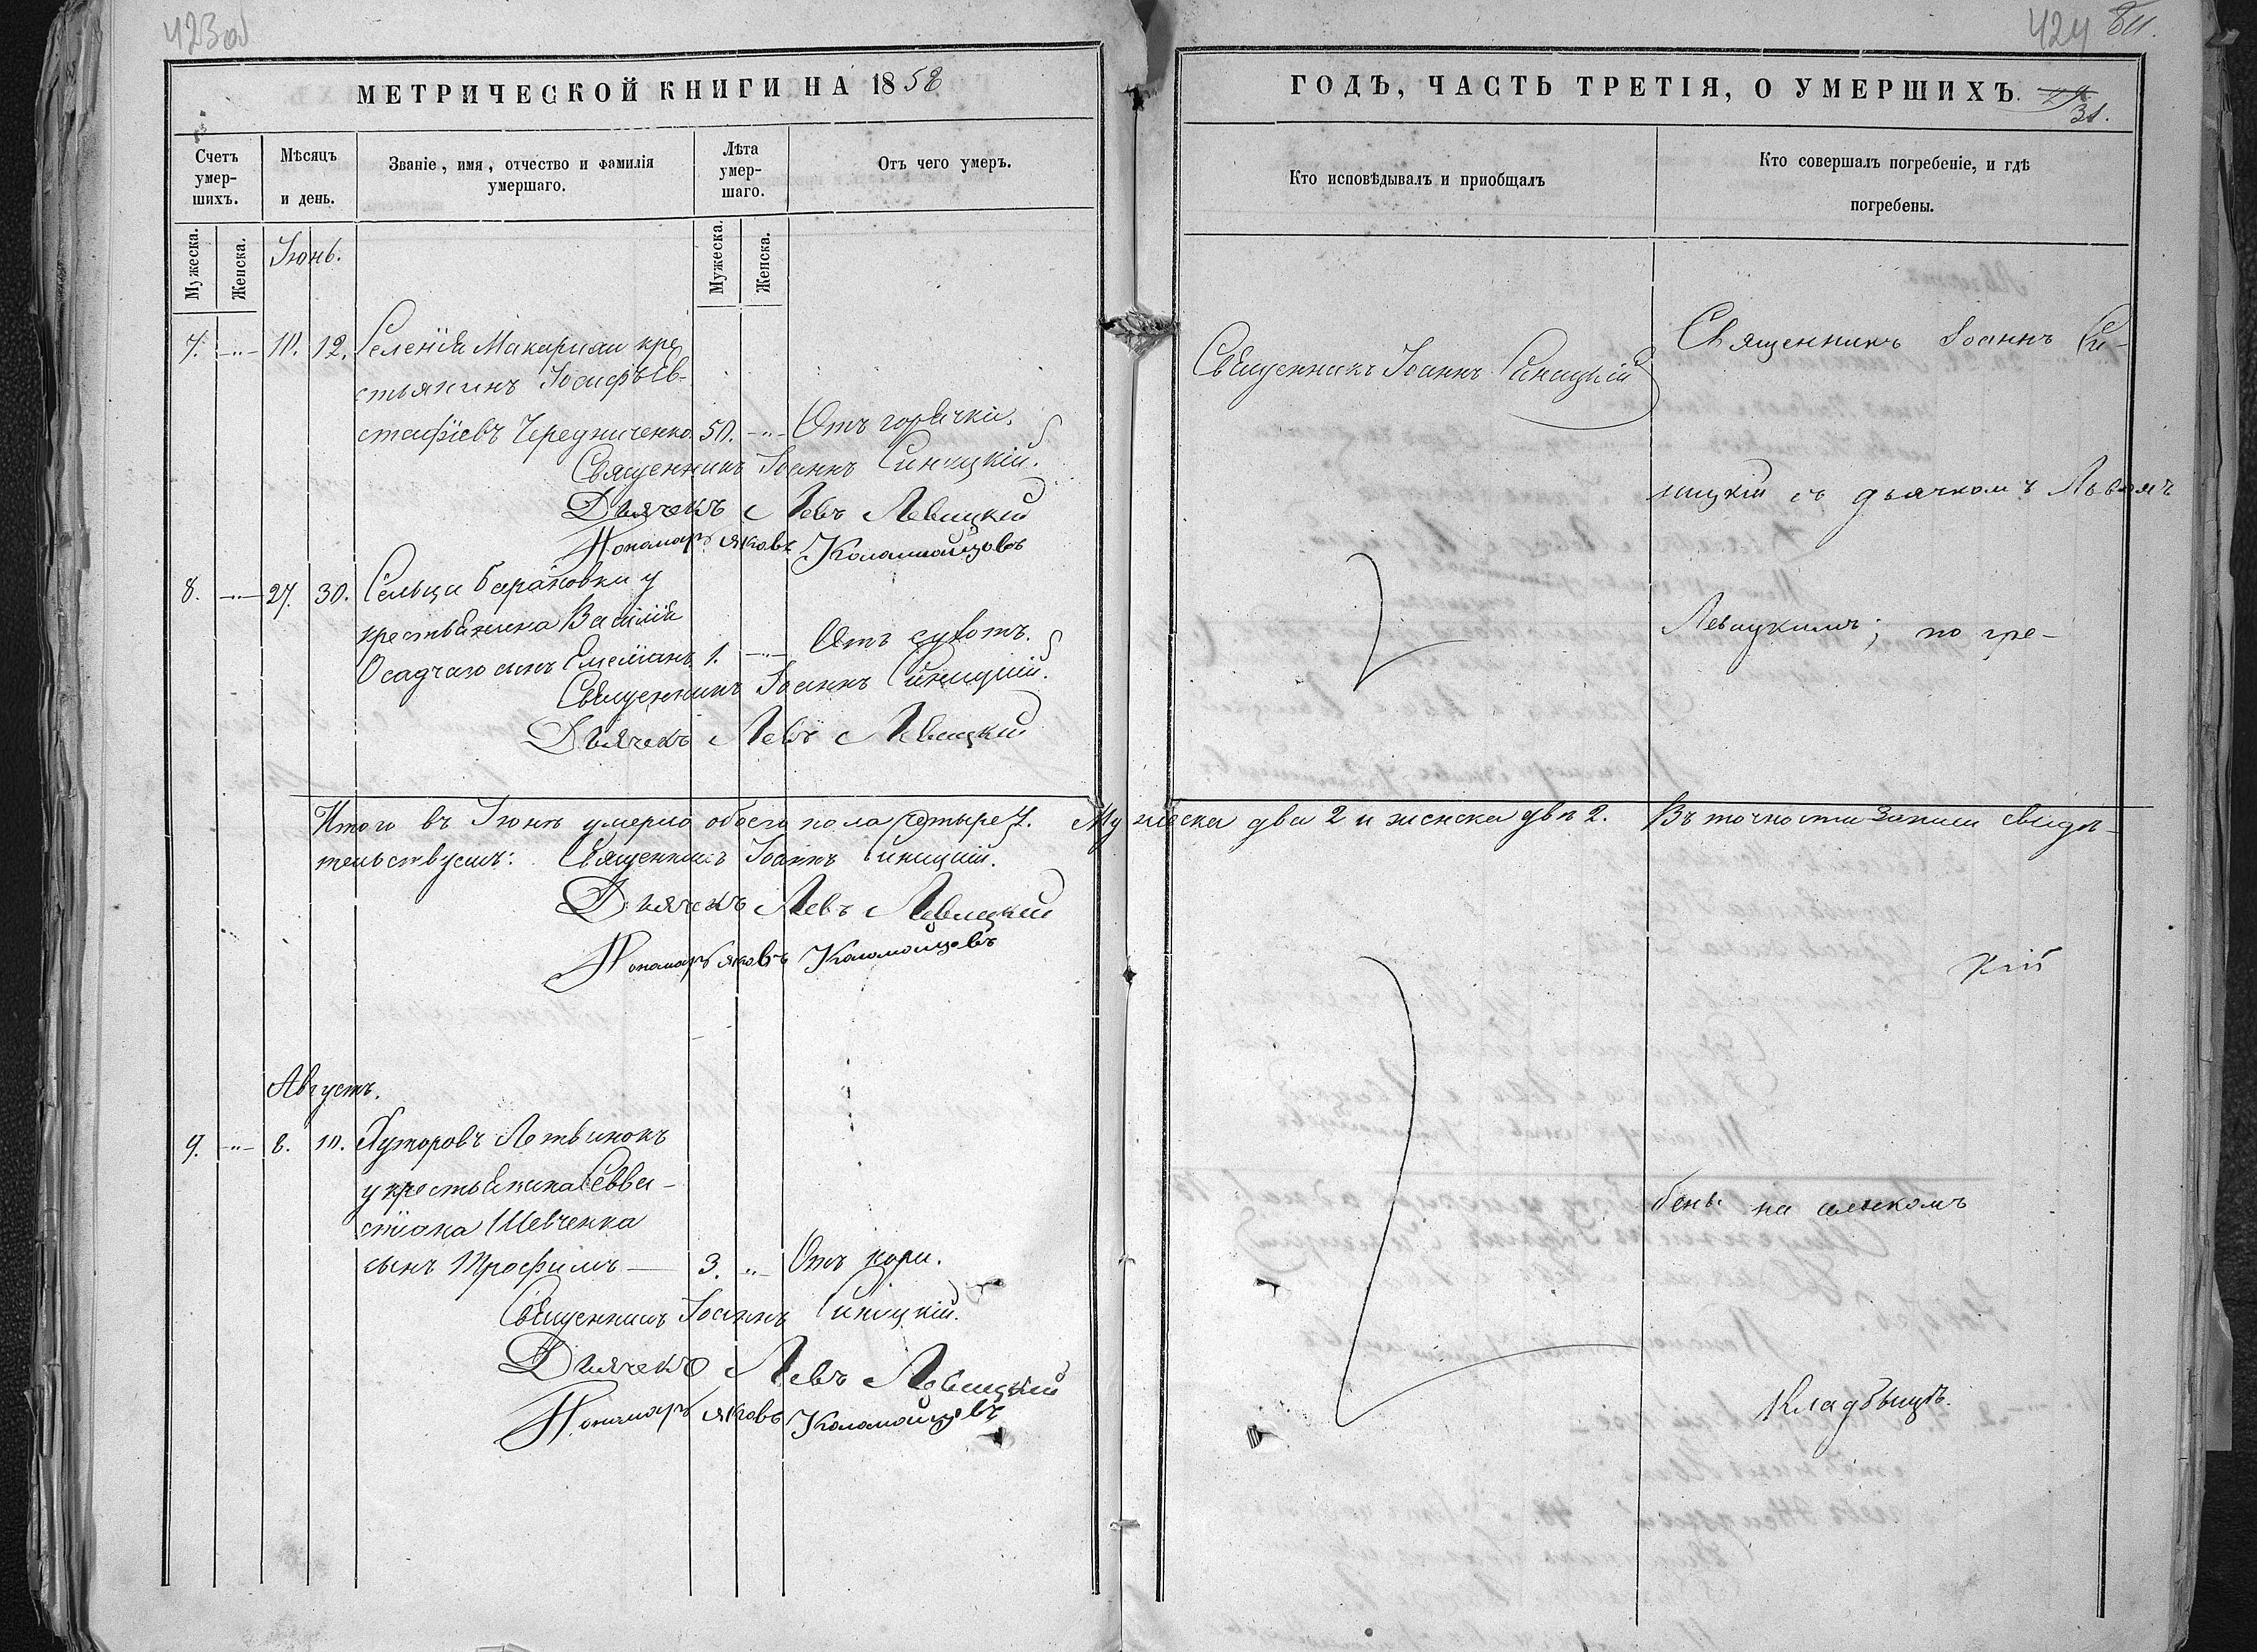 423об
МЕТРИЧЕСКОЙ КНИГИ НА 1858
Счетъ умер-шихъ.
Мѣсяцъ и день.
Званіе, имя, отчество и фамилія умершаго.
Лѣта умер-шаго.
Отъ чего умеръ.
Мужеска.
Женска.
Мужеска.
Женска.
Іюнь.
7. -„- 10. 12. Селенія Макарихи кре
стьянинъ Іосифъ Ев-
стафіевъ Чередниченко. 50. -„- Отъ горячки.
Священникъ Іоаннъ Синицкій.
Дьячекъ Левъ Левицкій
Пономарь Яковъ Коломойцовъ
8. -„- 27. 30. Сельца Барановки у
крестьянина Василія
Осадчаго сынъ Емеліанъ. 1. -„- Отъ сухотъ.
Священникъ Іоаннъ Синицкій.
Дьячекъ Левъ Левицкій
Итого въ Іюнѣ умерло обоего пола четыре 4. Мужеска два 2 и женска двѣ 2. Въ точности записи свидѣ-
тельствуемъ: Священникъ Іоаннъ Синицкій.
Дьячекъ Левъ Левицкій
Пономарь Яковъ Коломойцовъ
Августъ.
9. -„- 8. 10. Хуторовъ Литвинокъ
у крестьянина Савва-
стіана Шевченка
сынъ Трофимъ — 3. „- Отъ кори.
Священникъ Іоаннъ Синицкій.
Дьячекъ Левъ Левицкій
Пономарь Яковъ Коломойцовъ
424
ГОДЪ, ЧАСТЬ ТРЕТІЯ, О УМЕРШИХЪ.
31.
Кто исповѣдывалъ и приобщалъ
Кто совершалъ погребеніе, и гдѣ погребены.
Священникъ Іоаннъ Синицкій
Священникъ Іоаннъ Си-
ницкій съ дьячкомъ Львомъ
Левицкимъ; по гре-
бены на сельскомъ
кладбищѣ.